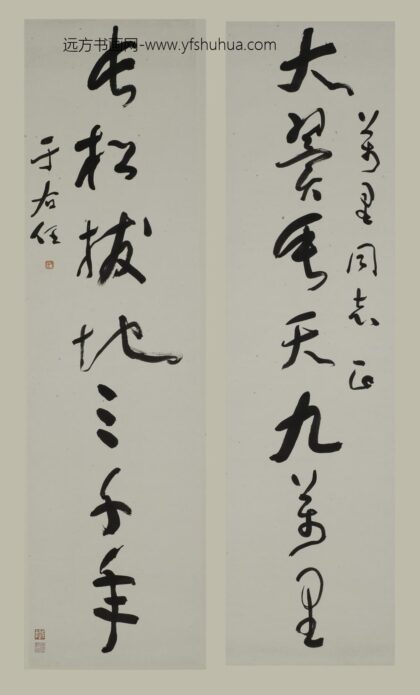 远方书画网-www.yfshuhua.com
万里同志正
大翼垂天九萬里
長松拔地三千年
于右任